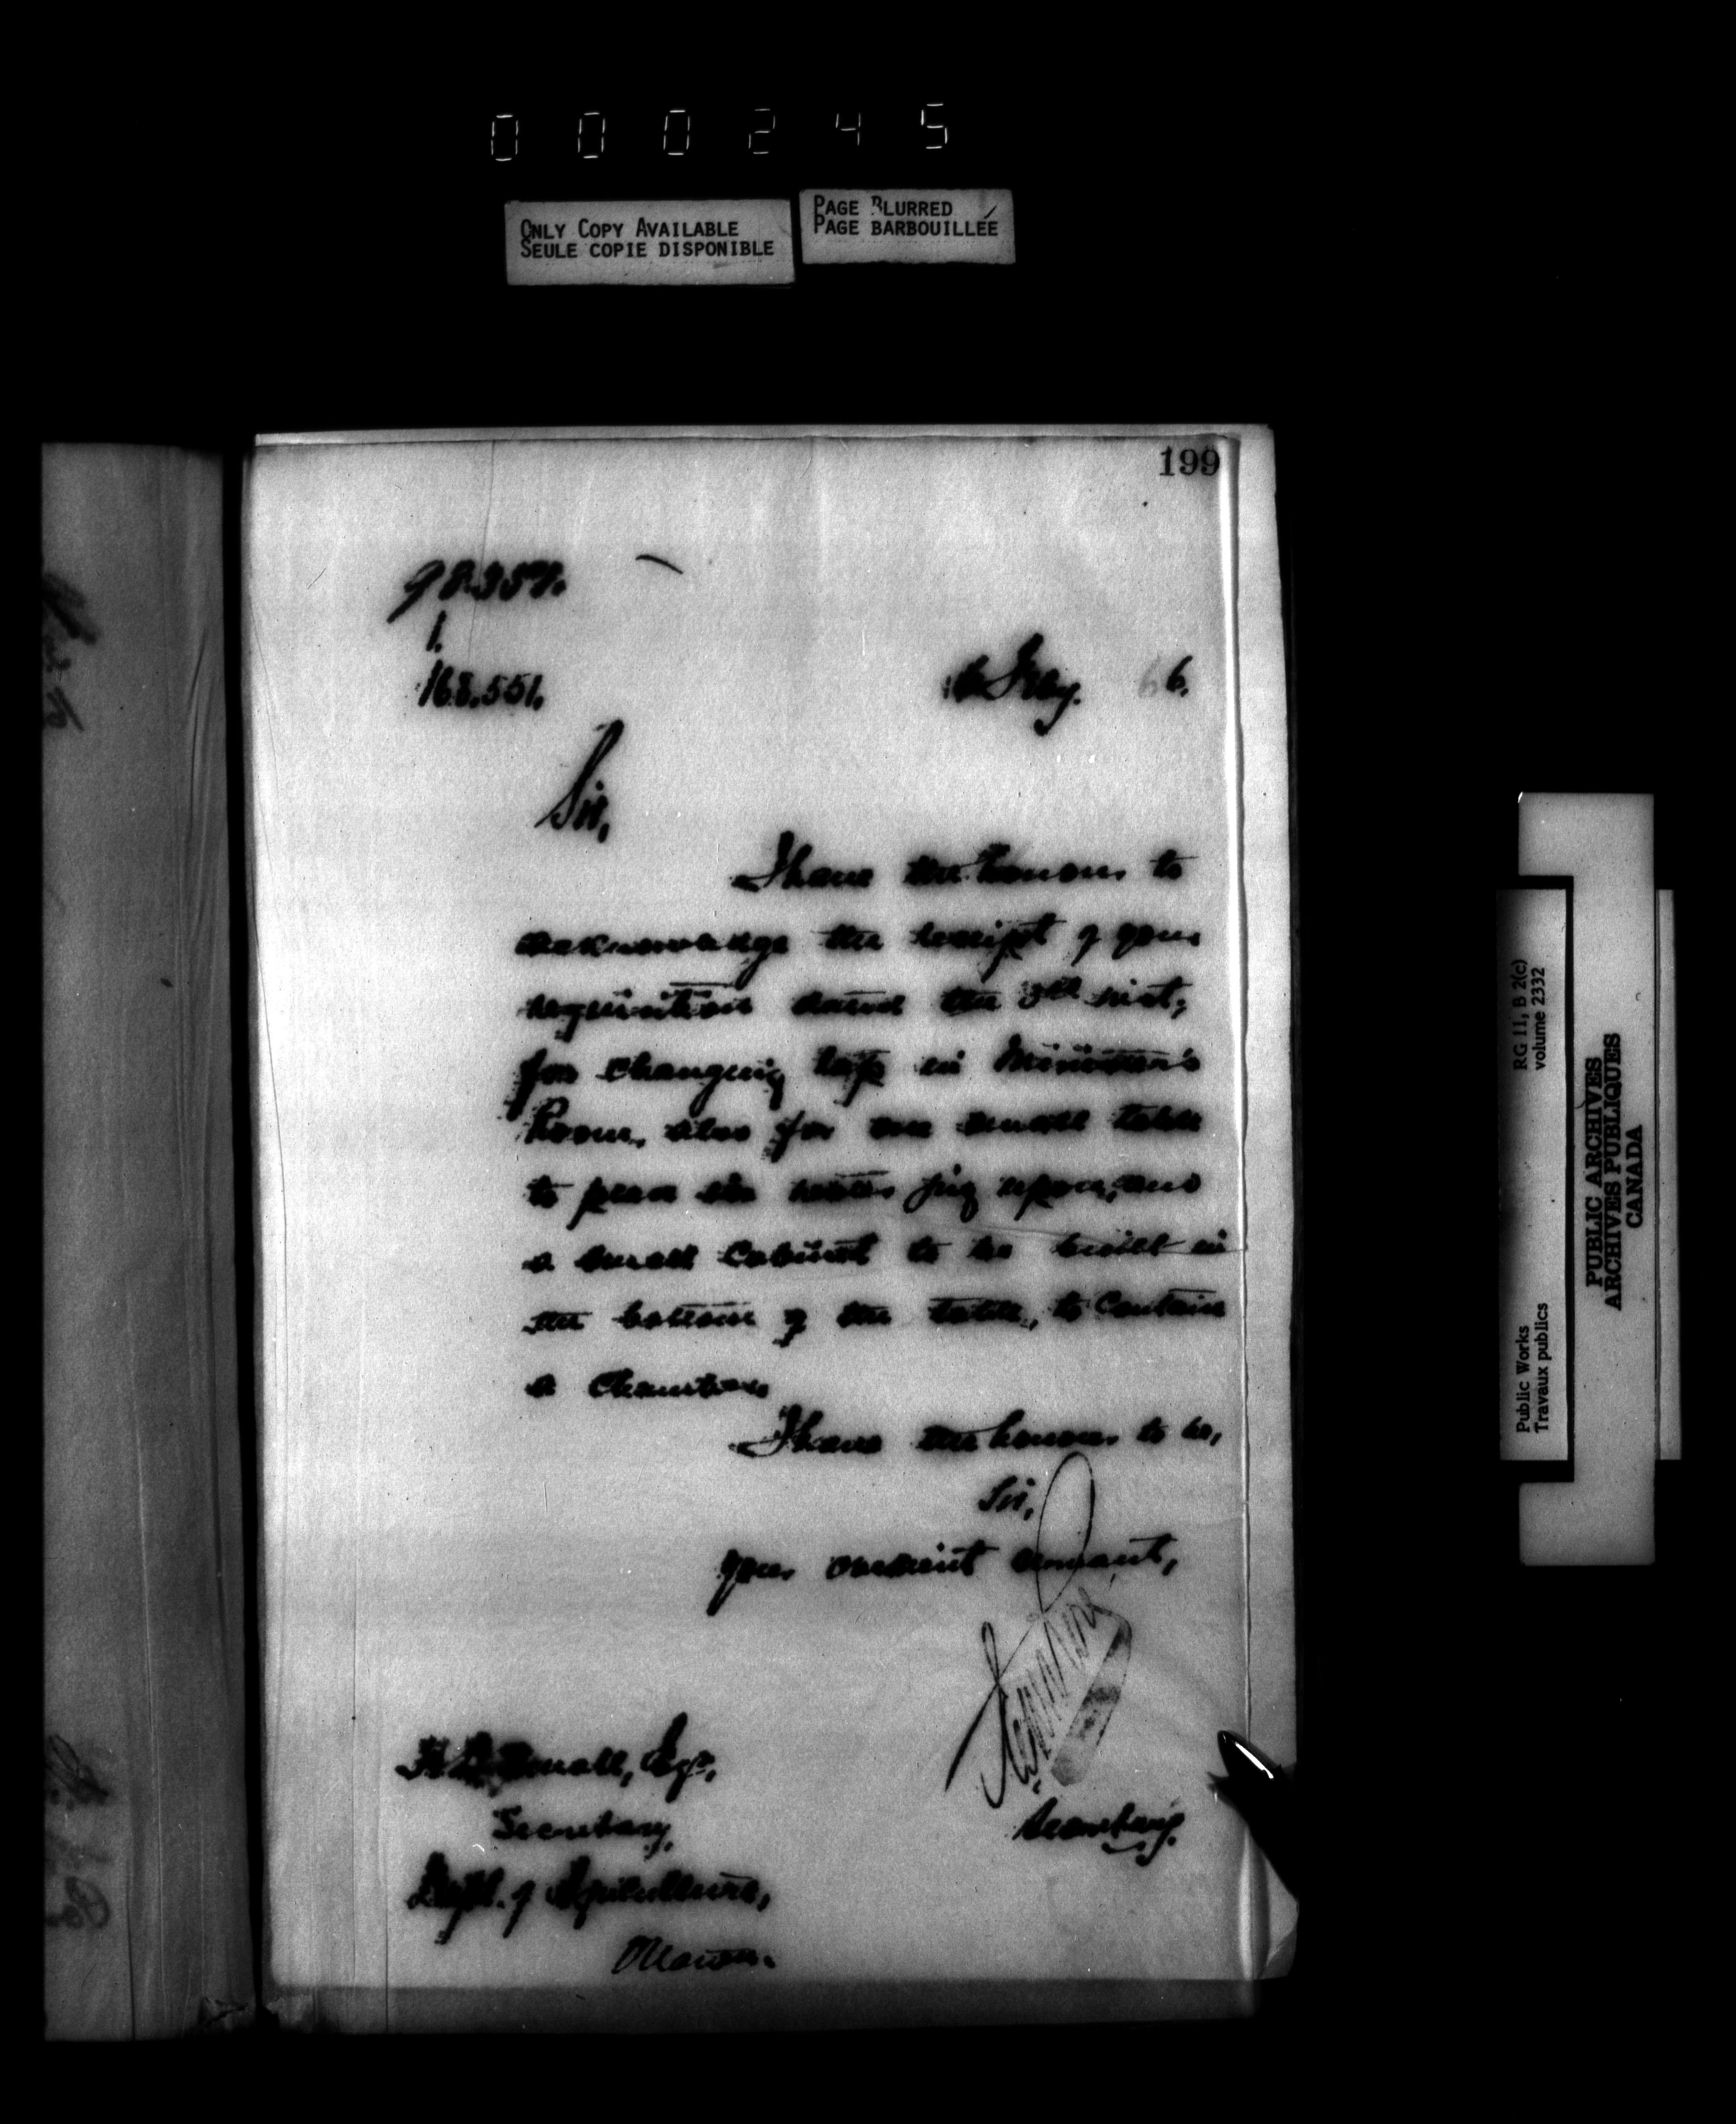 000245
ONLY COPY AVAILABLE
SEULE COPIE DISPONIBLE
PAGE BLURRED
PAGE BARBOUILLÉE
199
1.
168.551.
Feby. 6.
Sir,
I have the honour to
acknowledge the receipt of your
requisition the inst,
for changing tap in Minister's
Room, also for one small table
to place ice water jug upon, and
a small Cabinet to be built in
the bottom of the table, to Contain
a
I have the honour to be,
Sir,
Your obedient servant,
Secretary.
Esqr,
Secretary,
Dept. of Agriculture,
Ottawa.
Public Works
Travaux publics
RG 11, B 2(c)
volume 2332
PUBLIC ARCHIVES
ARCHIVES PUBLIQUES
CANADA